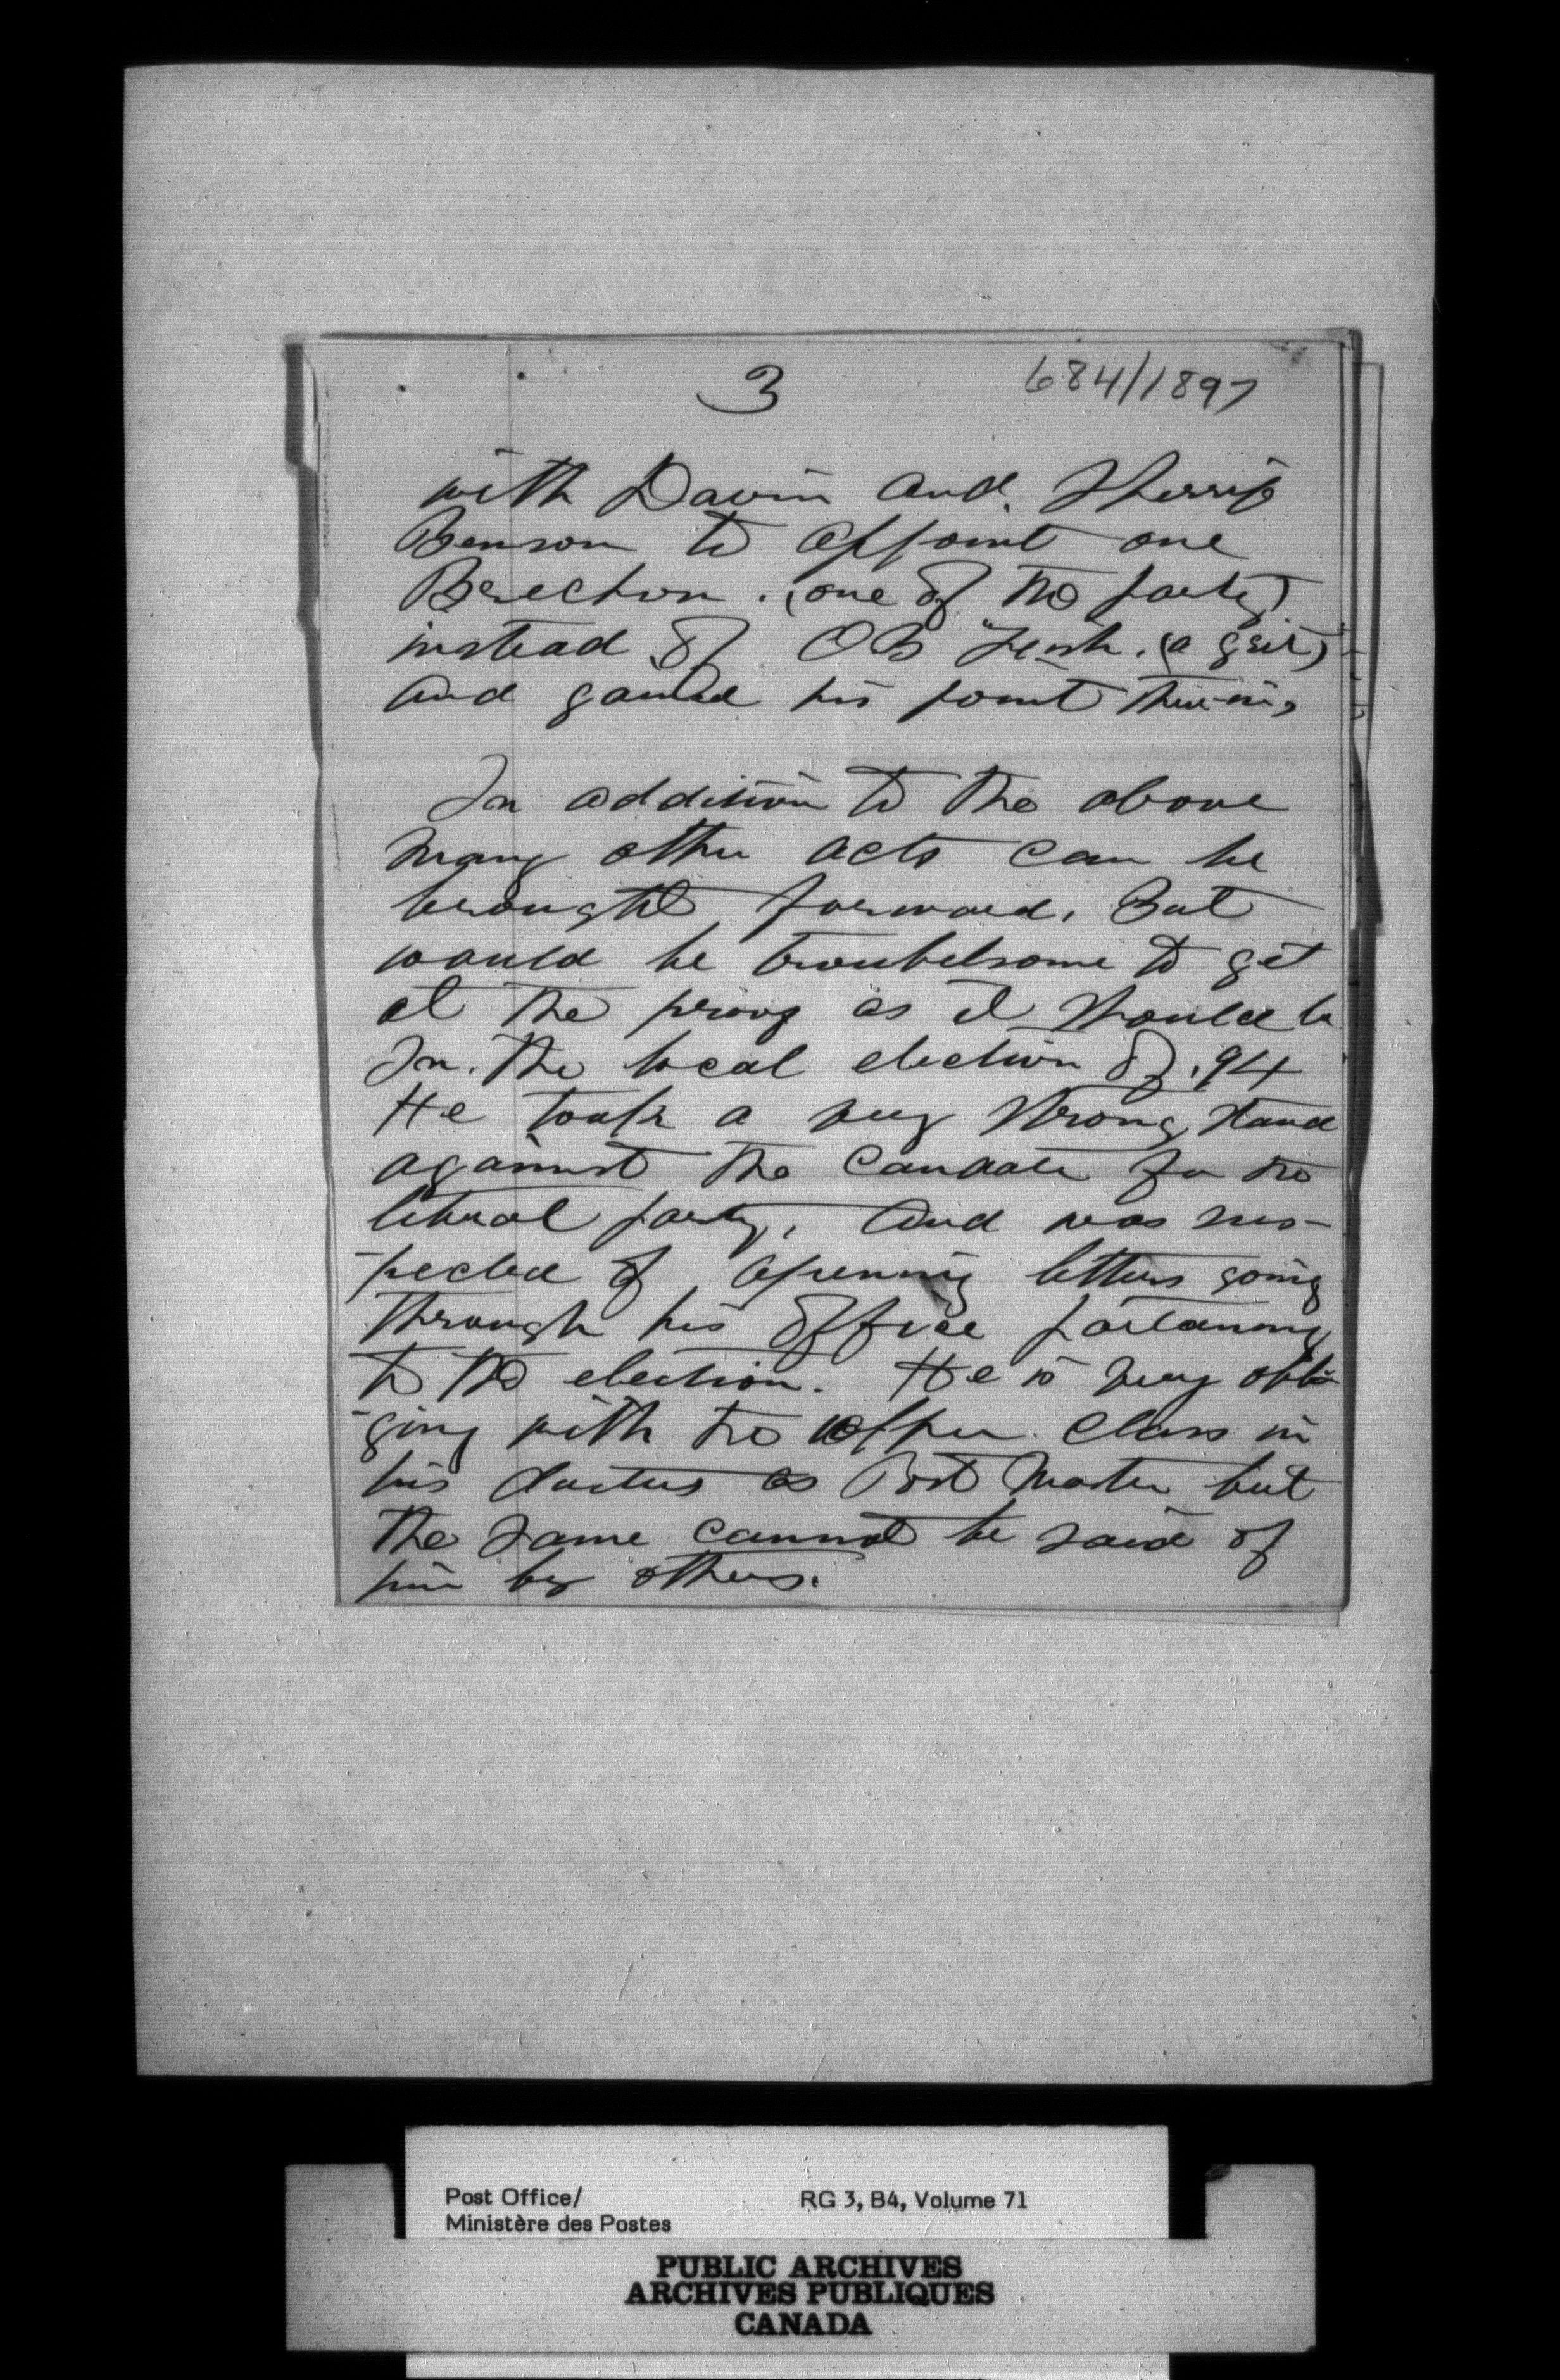 3
684/1897
with Davin and Sherrif
Benson to appoint one
(one of the party)
instead of OB (a grit)
and gained his point therein,
In addition to the above
many other acts can be
brought forward, But
would be troubelsome to get
at the proof as it should be
In the local election of .94
He took a very strong stand
against the Candate for the
liberal party, and was sus-
-pected of opening letters going
through his office
to the election. He is very obli-
-ging with the upper class in
his duties as Post Master but
the same cannot be said of
him by others.
Post Office/
Ministère des Postes
RG 3, B4, Volume 71
PUBLIC ARCHIVES
ARCHIVES PUBLIQUES
CANADA